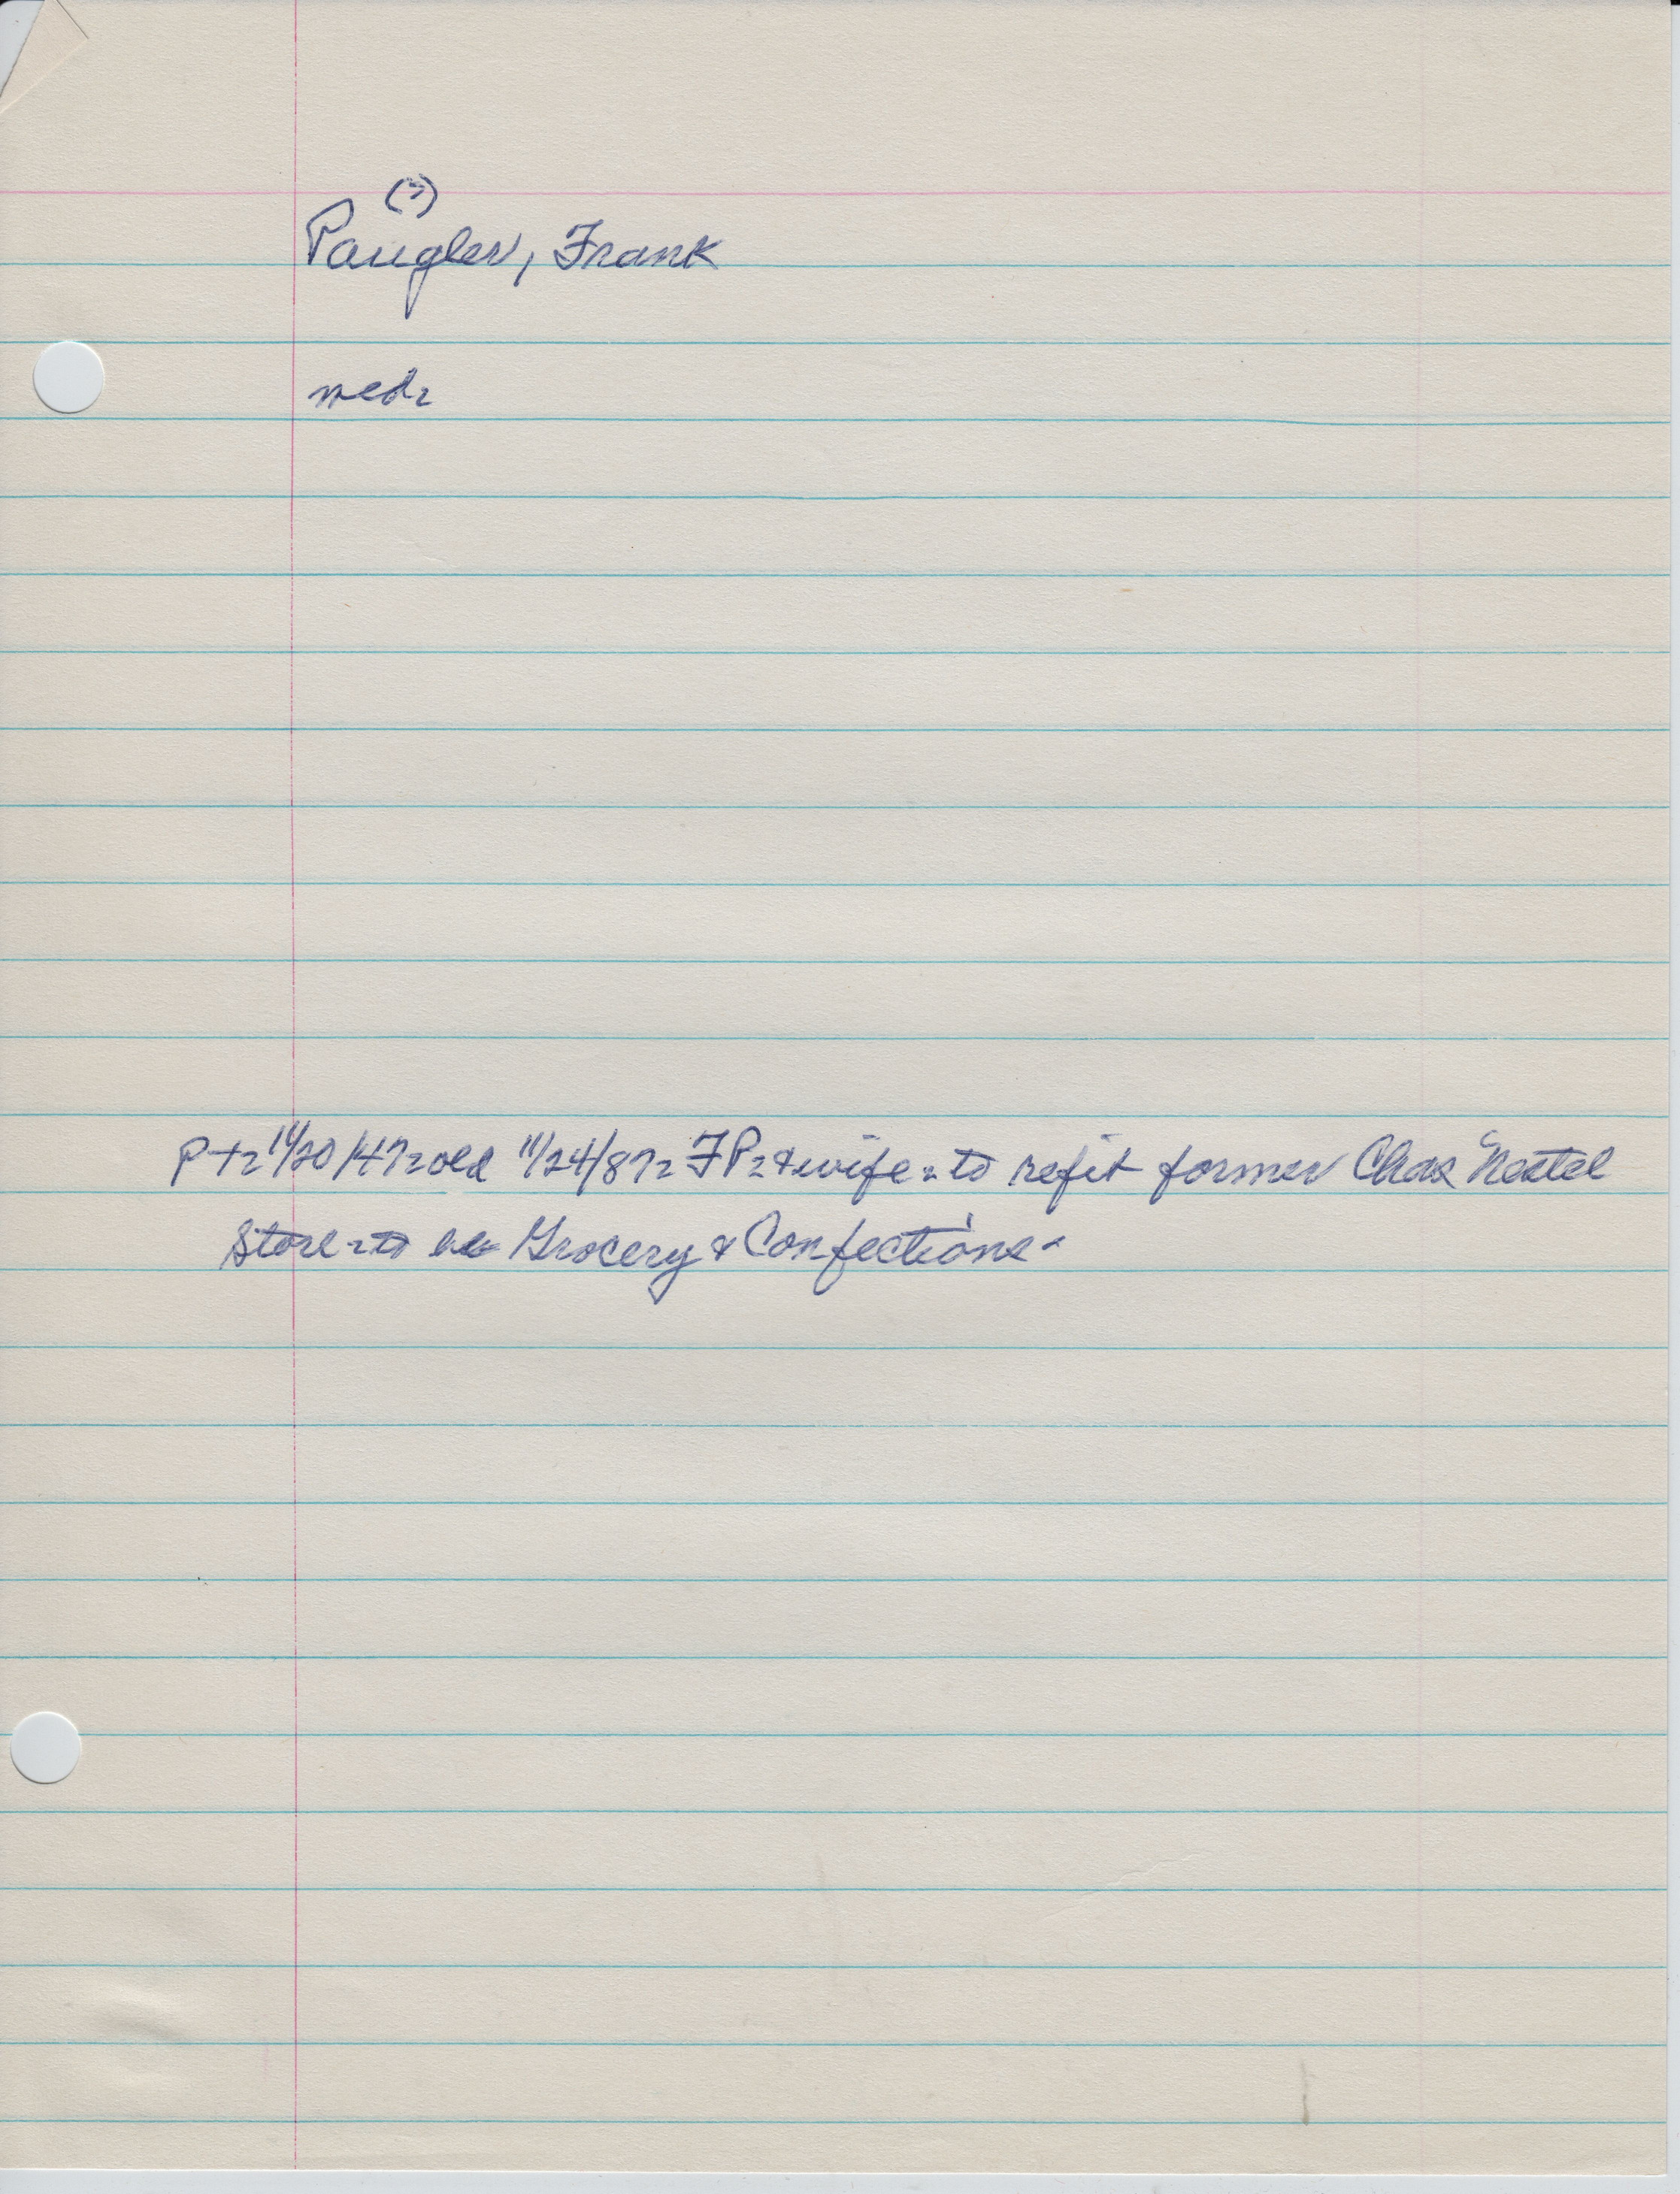 (?)
Paugler, Frank
med-
P+- 11/20/47-old 11/24/87- FP-&wife-to refit former Chas Nestel
Store-to be Grocery & Confections-